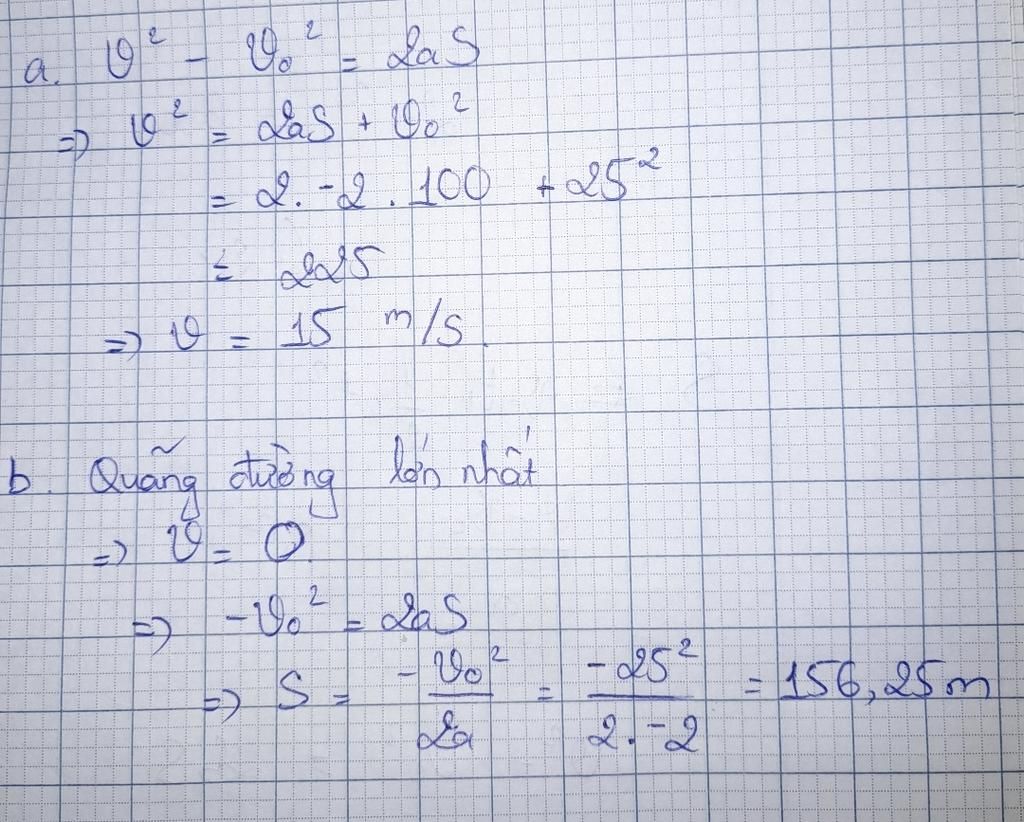 a. v² - v₀² = 2aS
=> v² = 2aS + v₀²
= 2. -2 . 100 + 25²
= 225
=> v = 15 m/s.
b. Quãng đường lớn nhất
=> v = 0.
=> -v₀² = 2aS
=> S = -v₀²/2a = -25²/2.-2 = 156,25m